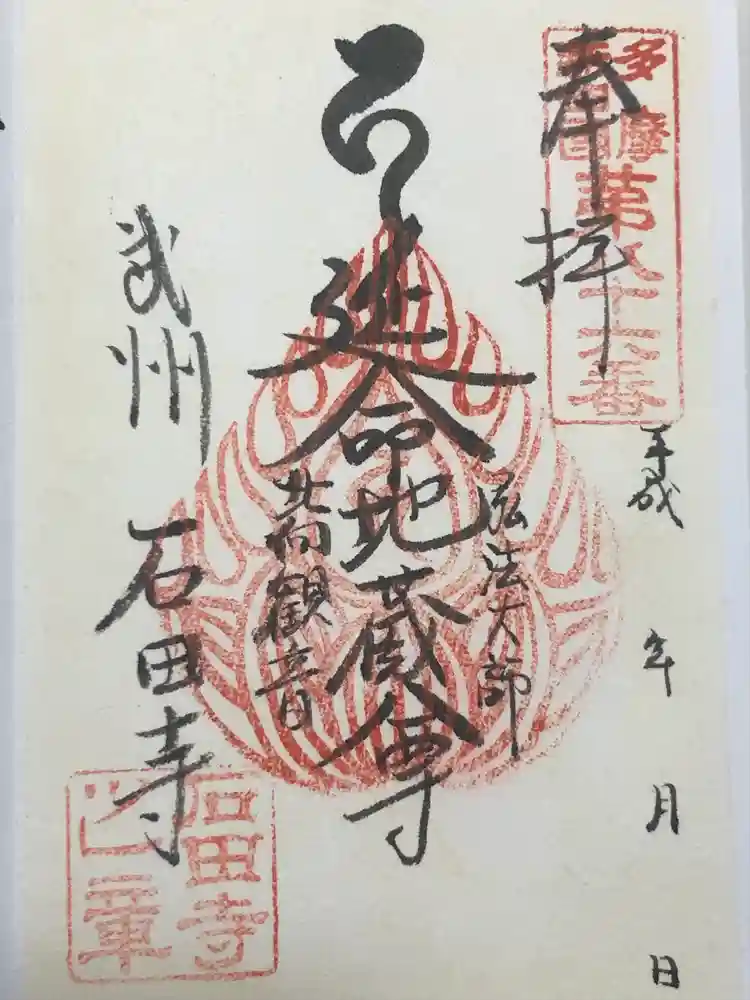 奉拝
多摩
第八十六番
平成　年　月　日
弘法大師
延命地蔵尊
北向観音
武州　石田寺
石田寺
之章